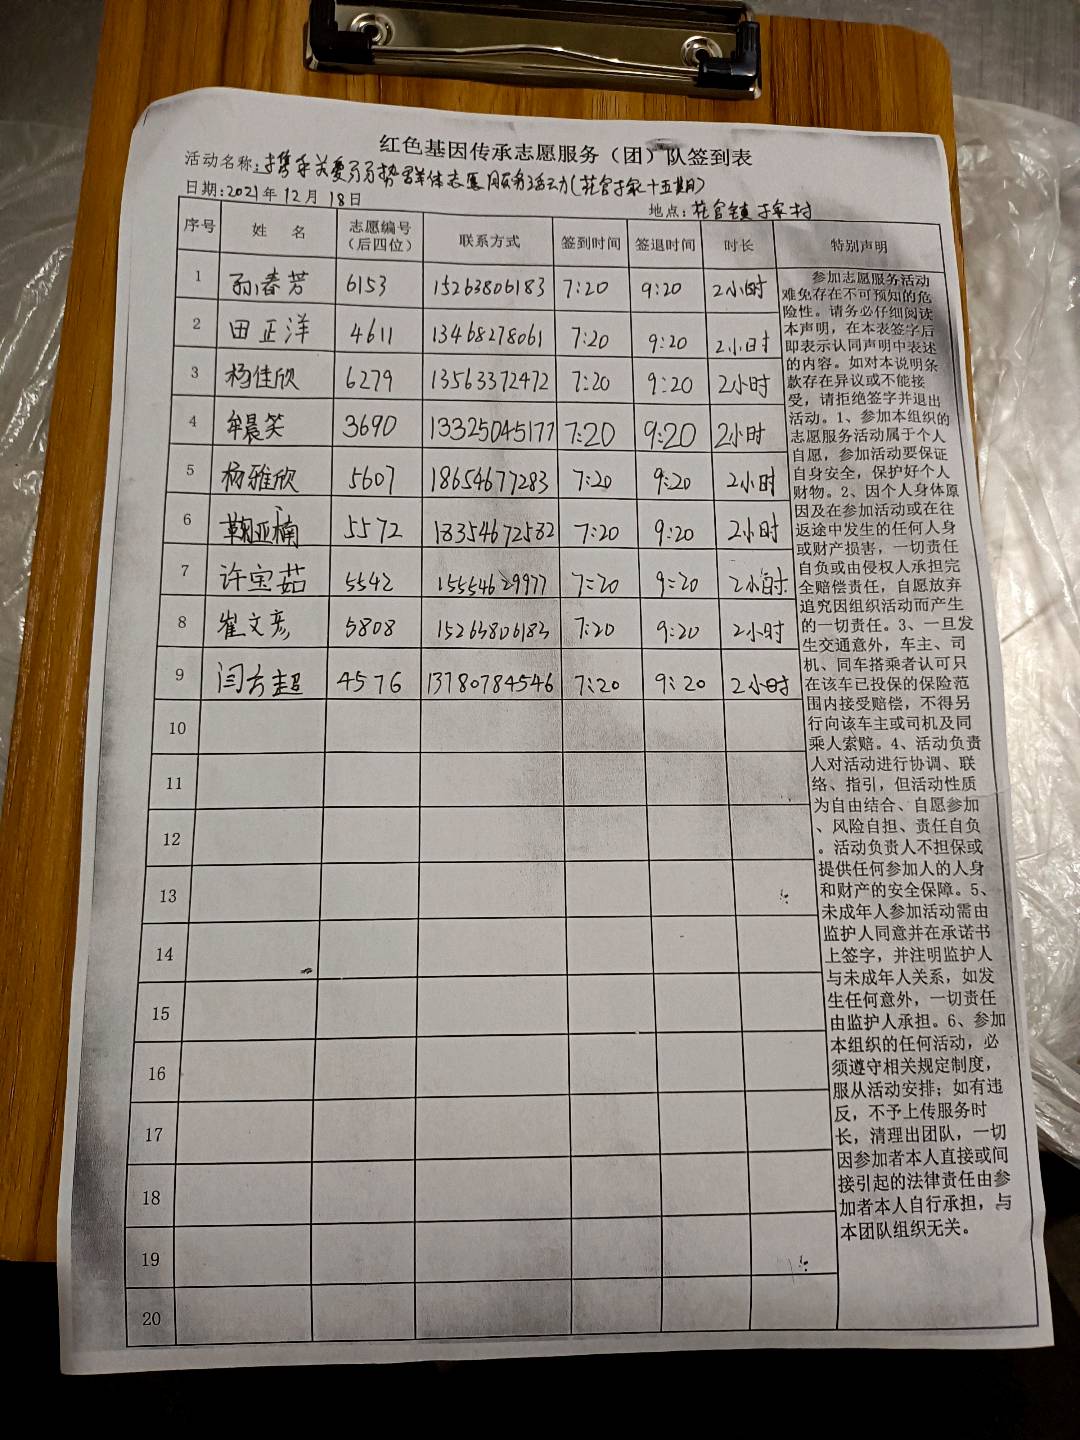 红色基因传承志愿服务（团）队签到表
活动名称：携手关爱弱势群体志愿服务活动（花官于家十五期）
日期：2021年12月18日
地点：花官镇于家村
序号 姓名 志愿编号（后四位） 联系方式 签到时间 签退时间 时长 特别声明
1 孙春芳 6153 15263806183 7:20 9:20 2小时
2 田正洋 4611 13468278061 7:20 9:20 2小时
3 杨佳欣 6279 13563372472 7:20 9:20 2小时
4 牟晨笑 3690 13325045177 7:20 9:20 2小时
5 杨雅欣 5607 18654677283 7:20 9:20 2小时
6 鞠亚楠 5572 18354672582 7:20 9:20 2小时
7 许宝茹 5542 15554629977 7:20 9:20 2小时
8 崔文彦 5808 15263806183 7:20 9:20 2小时
9 闫方超 4576 13780784546 7:20 9:20 2小时
10
11
12
13
14
15
16
17
18
19
20
参加志愿服务活动
难免存在不可预知的危
险性。请务必仔细阅读
本声明，在本表签字后
即表示认同声明中表述
的内容。如对本说明条
款存在异议或不能接
受，请拒绝签字并退出
活动。1、参加本组织的
志愿服务活动属于个人
自愿，参加活动要保证
自身安全，保护好个人
财物。2、因个人身体原
因及在参加活动或在往
返途中发生的任何人身
或财产损害，一切责任
自负或由侵权人承担完
全赔偿责任，自愿放弃
追究因组织活动而产生
的一切责任。3、一旦发
生交通意外，车主、司
机、同车搭乘者认可只
在该车已投保的保险范
围内接受赔偿，不得另
行向该车主或司机及同
乘人索赔。4、活动负责
人对活动进行协调、联
络、指引，但活动性质
为自由结合、自愿参加
、风险自担、责任自负
。活动负责人不担保或
提供任何参加人的人身
和财产的安全保障。5、
未成年人参加活动需由
监护人同意并在承诺书
上签字，并注明监护人
与未成年人关系，如发
生任何意外，一切责任
由监护人承担。6、参加
本组织的任何活动，必
须遵守相关规定制度，
服从活动安排；如有违
反，不予上传服务时
长，清理出团队，一切
因参加者本人直接或间
接引起的法律责任由参
加者本人自行承担，与
本团队组织无关。